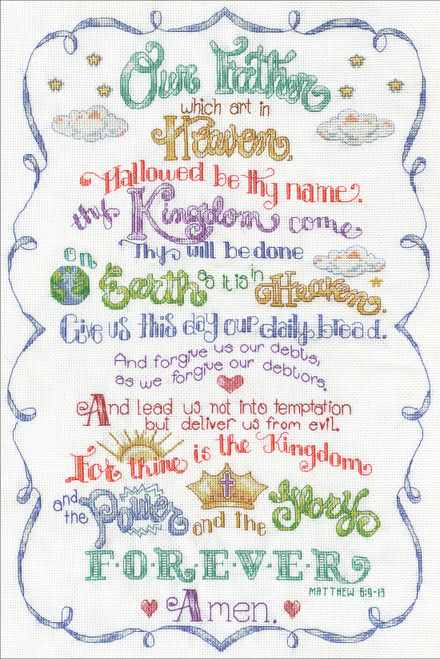 Our Father
which art in
Heaven,
Hallowed be thy name.
thy Kingdom come
Thy will be done
on Earth as it is in Heaven.
Give us this day our daily bread.
And forgive us our debts,
as we forgive our debtors.
And lead us not into temptation
but deliver us from evil.
For thine is the Kingdom
and the Power and the Glory
F·O·R·E·V·E·R
MATTHEW 6:9-13
Amen.